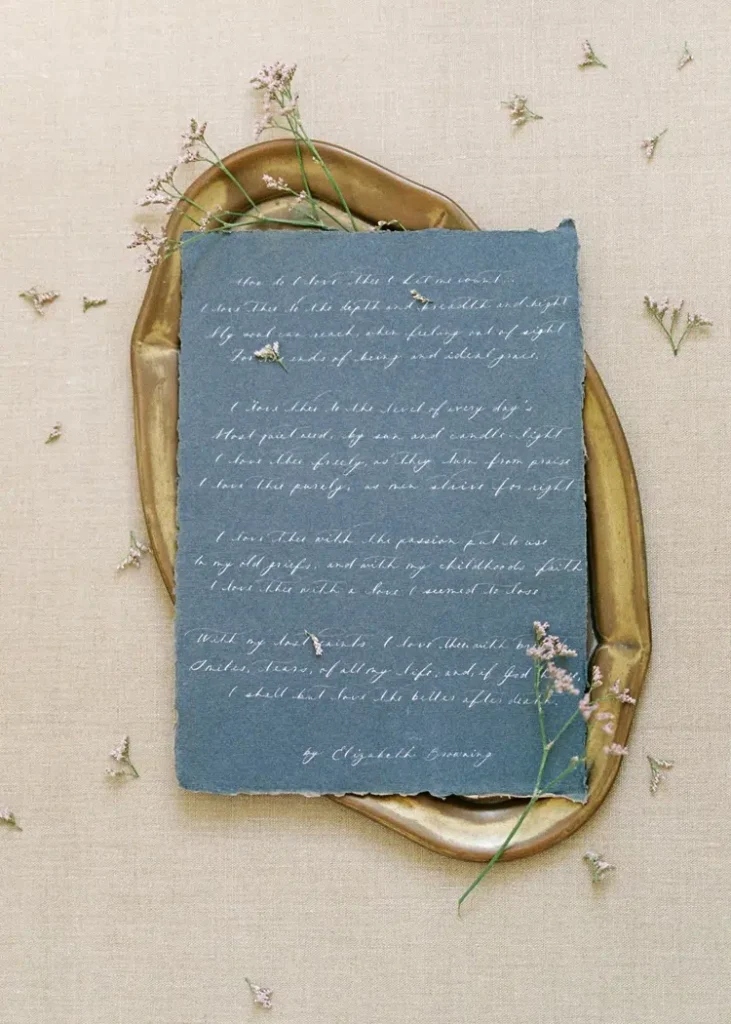 How do I love thee? Let me count...
I love thee to the depth and breadth and height
My soul can reach, when feeling out of sight
For ends of being and ideal grace.
I love thee to the level of every day's
Most quiet need, by sun and candle-light
I love thee freely, as they turn from praise
I love thee purely, as men strive for right
I love thee with the passion put to use
In my old griefs, and with my childhoods faith
I love thee with a love I seemed to lose
With my lost saints. I love thee with
Smiles, tears, of all my life, and, if God
I shall but love the better after death.
by Elizabeth Browning